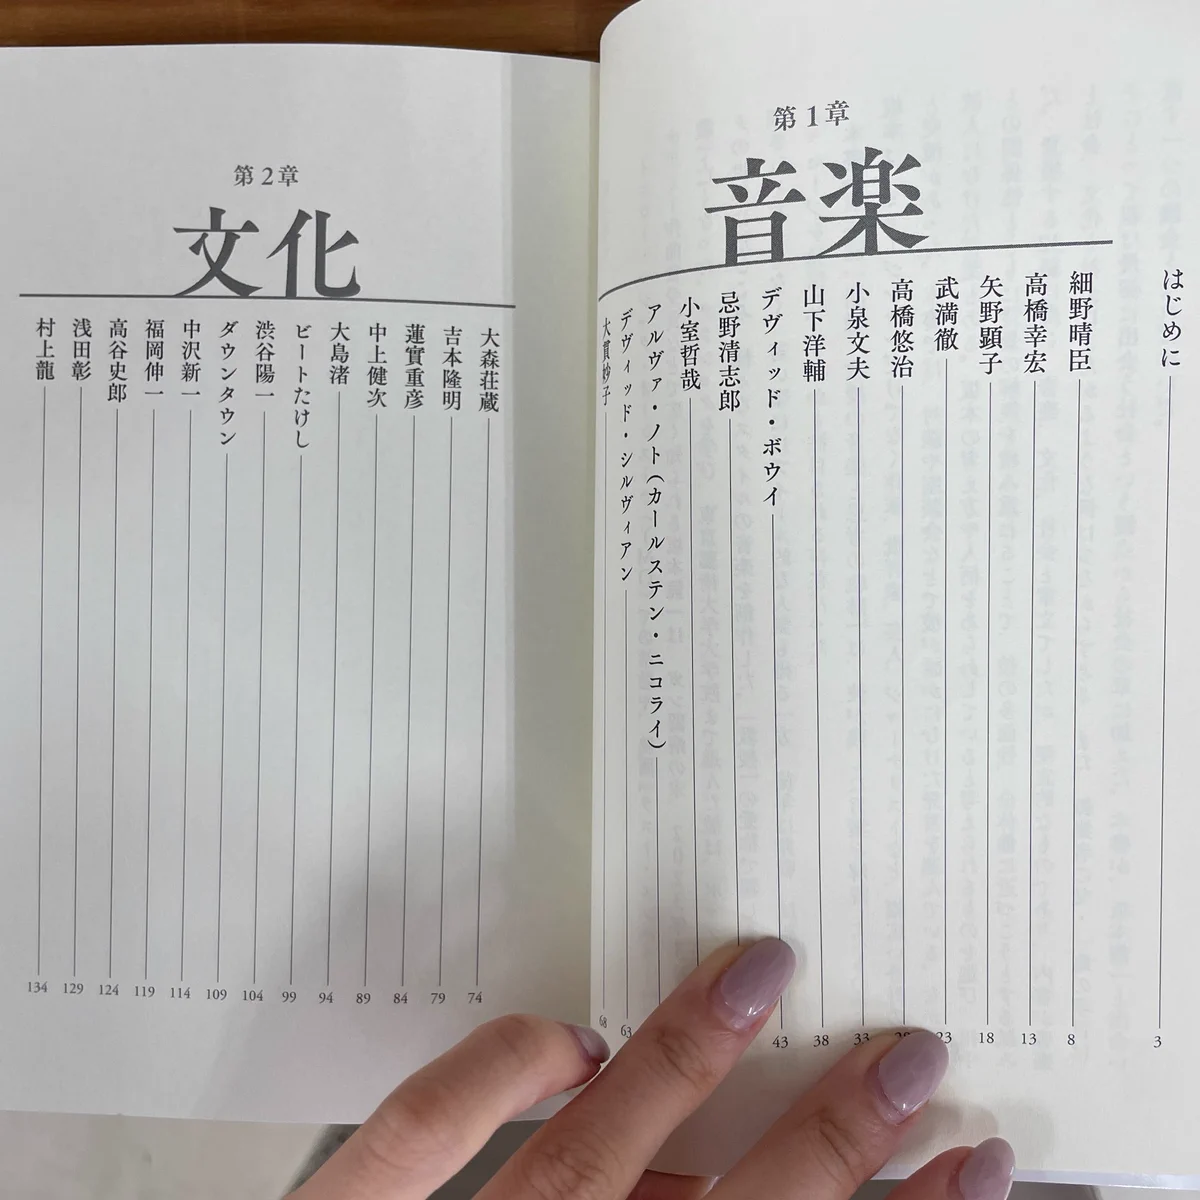 第1章
音楽
はじめに 3
細野晴臣 8
高橋幸宏 13
矢野顕子 18
武満徹 23
高橋悠治
小泉文夫 33
山下洋輔 38
デヴィッド・ボウイ 43
忌野清志郎
小室哲哉
アルヴァ・ノト(カールステン・ニコライ)
デヴィッド・シルヴィアン 63
大貫妙子 68
第2章
文化
大森荘蔵 74
吉本隆明 79
蓮實重彦 84
中上健次 89
大島渚 94
ビートたけし 99
渋谷陽一 104
ダウンタウン 109
中沢新一 114
福岡伸一 119
高谷史郎 124
浅田彰 129
村上龍 134